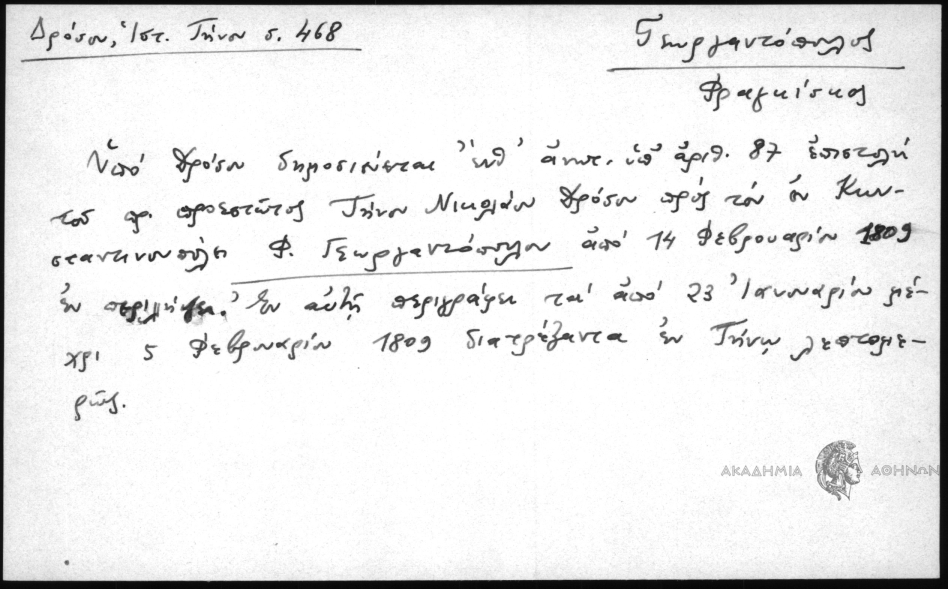 Δρόσου, Ἱστ. Τήνου σ. 468
Γεωργαντόπουλος
Φραγκίσκος
Ὑπό Δρόσου δημοσιεύεται ἔνθ' ἀνωτ. ὑπ' ἀριθ. 87 ἐπιστολή
τοῦ πρ. προεστῶτος Τήνου Νικολάου Δρόσου πρός τόν ἐν Κων-
σταντινουπόλει Φ. Γεωργαντόπουλον ἀπό 14 Φεβρουαρίου 1809
ἐν περιλήψει. Ἐν αὐτῇ περιγράφει τά ἀπό 23 Ἰανουαρίου μέ-
χρι 5 Φεβρουαρίου 1809 διατρέξαντα ἐν Τήνῳ λεπτομε-
ρῶς.
ΑΚΑΔΗΜΙΑ ΑΘΗΝΩΝ